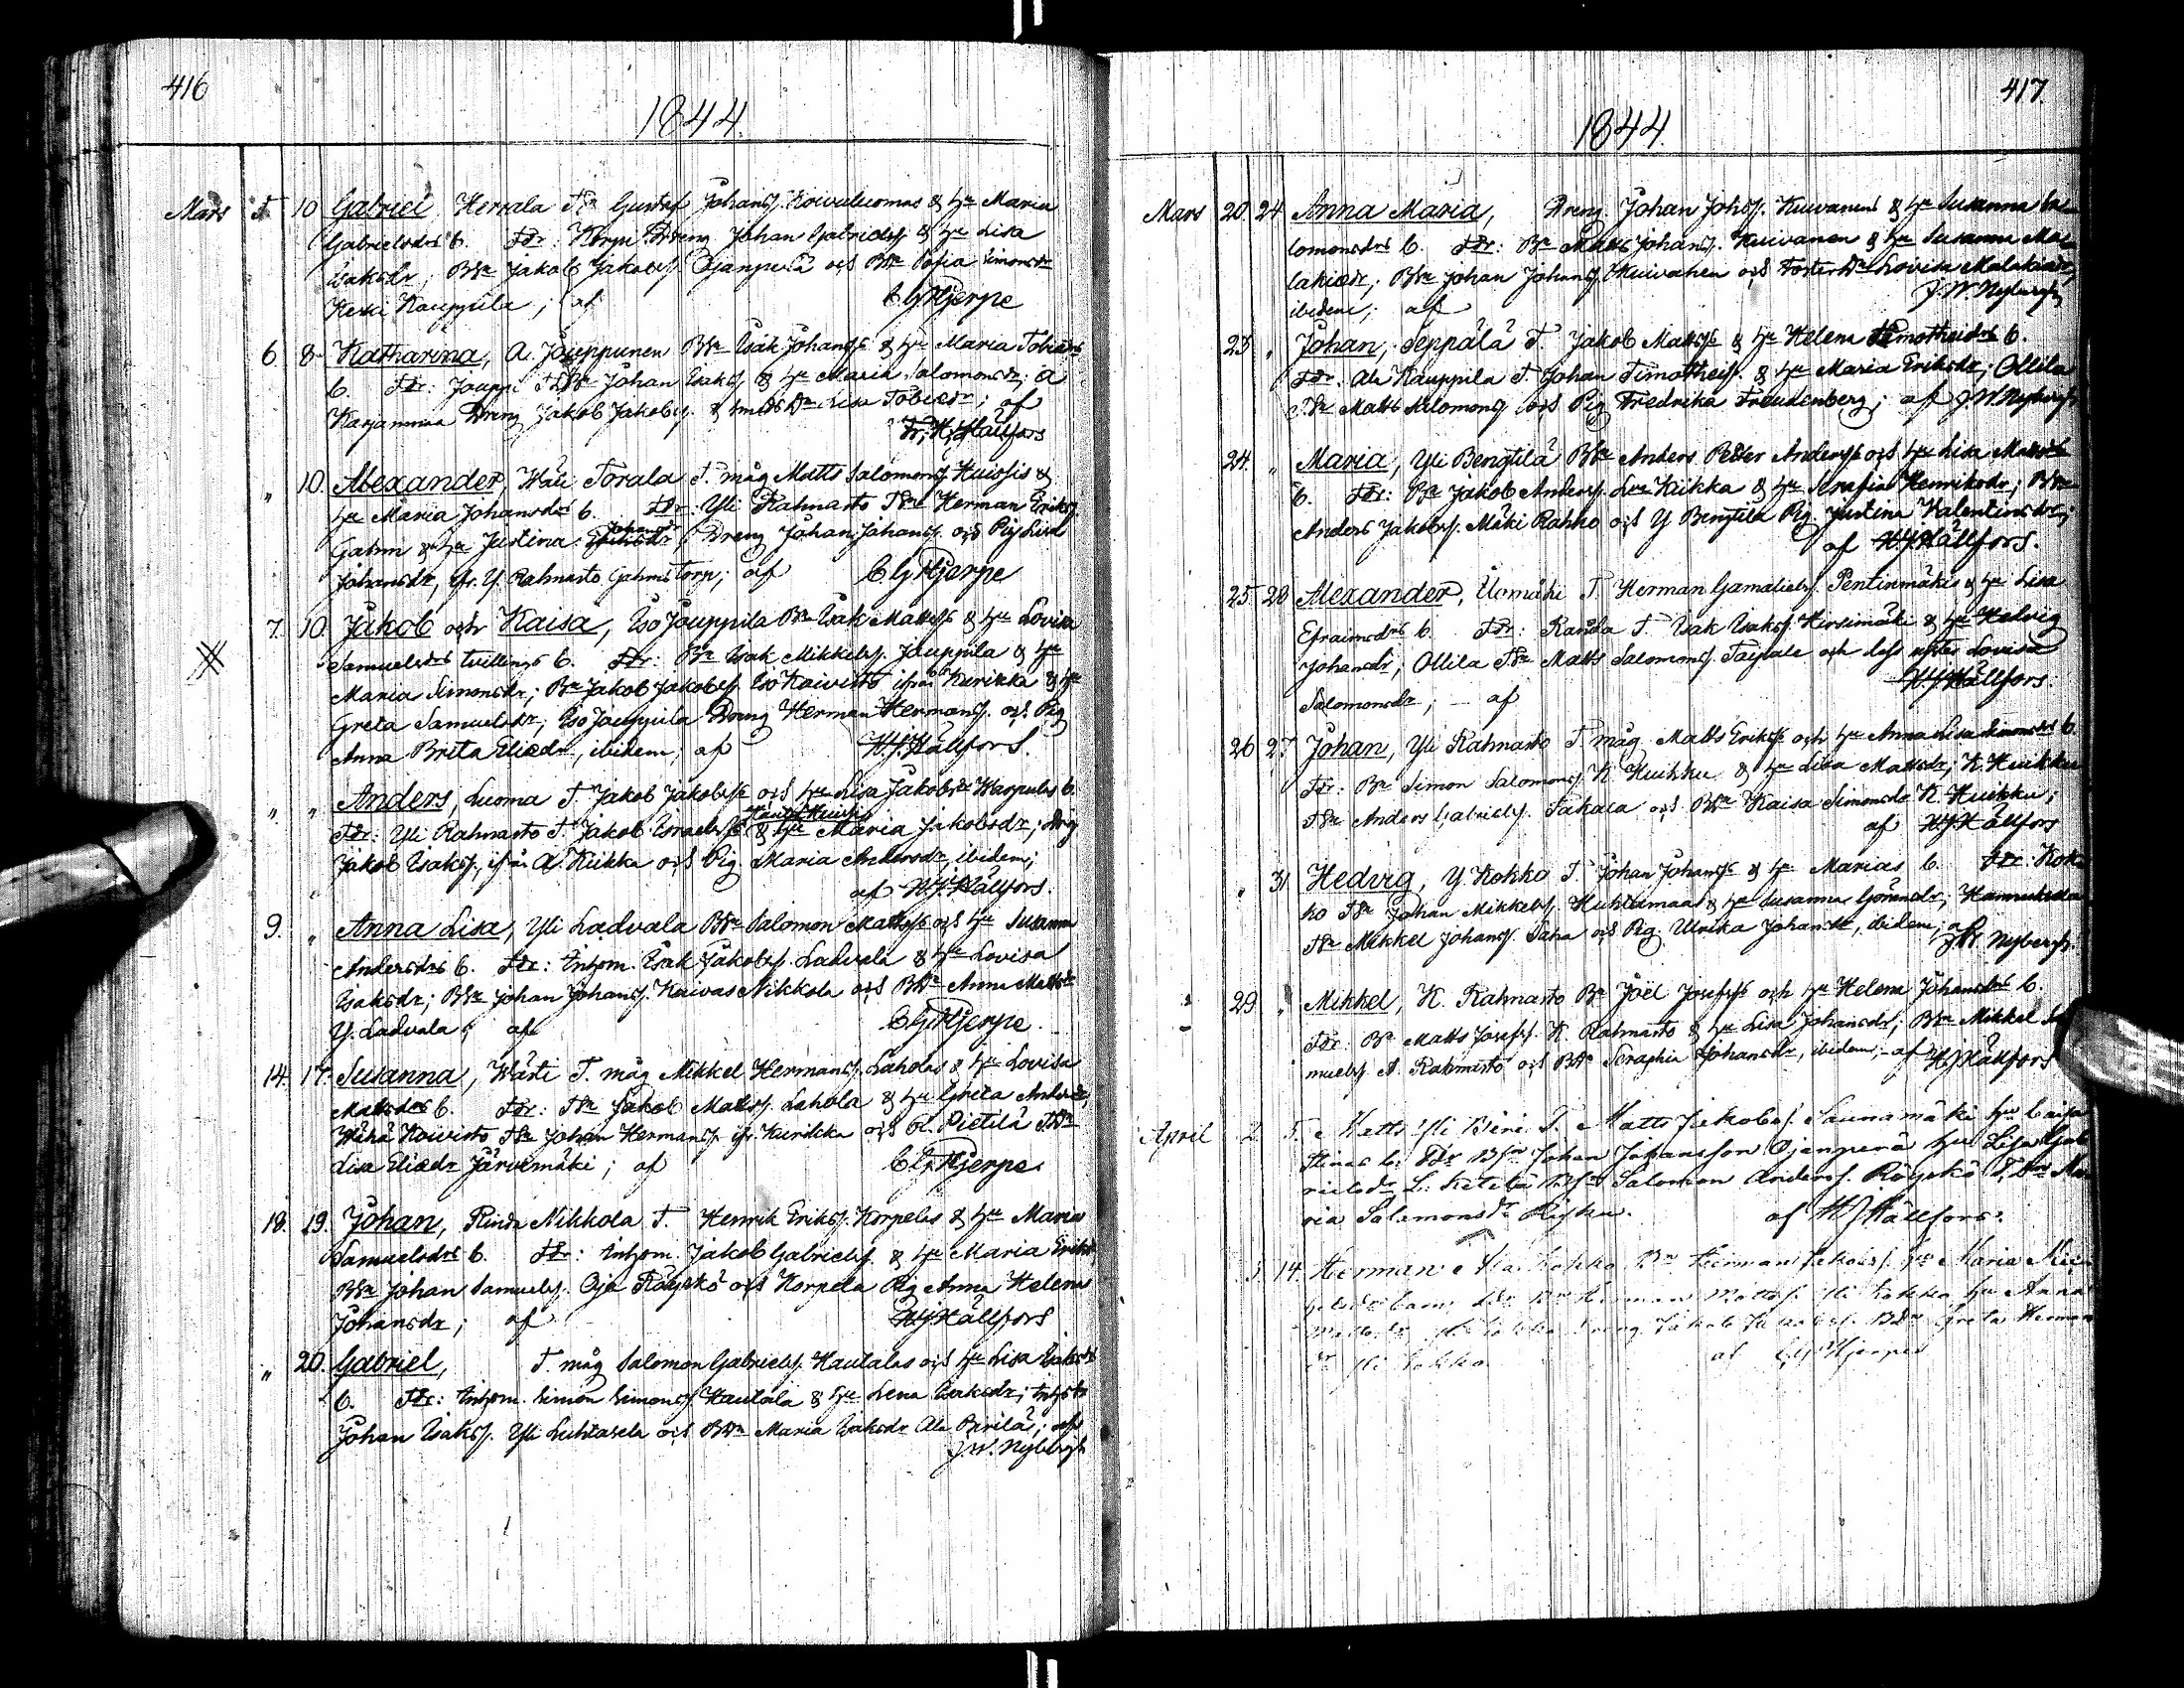 416
1844.
Mars 5 10 Gabriel, Herrala Tr Gustaf Johans. Koivuluomas & hu Maria
Gabrielsdrs b. Fdr: Korpi Dreng Johan Gabrielss & hu Lisa
Isaksdr; BSn Jakob Jakobss. Ojanperä och BDr Sofia Simonsdr
Heiki Kauppila; af C G Hjerpe
6. 8. Katharina, A. Jouppunen BSn Isak Johanss & hu Maria Tobiædrs
b. Fdr: Jouppi TdSn Johan Isakss. & hu Maria Salomonsdr; A
Karjanmaa Dreng Jakob Jakobss. & Dr Lisa Tobiædr; af
H. J. Hällfors
" 10. Alexander, Wäli Torala T. måg Matts Salomons. Huissis &
hu Maria Johansdrs b. Fdr: Yli Rahnasto TSn Herman Erikss.
Gahm & hu Justina Johansdr; Dreng Johan Johans. och Pig Lisa
Johansdr, ifr. Y. Rahnasto Gahms Torp; af C G Hjerpe
7. 10. Jakob och Kaisa, Iso Jouppila Bn Isak Mattss & hu Lovisa
Samuelsdrs tvillings b. Fdr: Bn Isak Mikkelss. Jouppila & hu
Maria Simonsdr; Bn Jakob Jakobss. Iso Koivisto ifrån Kurikka & hu
Greta Samuelsdr; Iso Jouppila Dreng Herman Hermans. och Pig
Anna Brita Eliædr, ibidem; af H. J. Hällfors.
" " Anders, Luoma T. Jakob Jakobss och hu Lisa Jakobsdr Warpulas b.
Fdr: Yli Rahnasto T. Jakob Israelss & hu Maria Jakobsdr; drg
Jakob Isakss., ifrån A Kiikka och Pig Maria Andersdr, ibidem;
af H. J. Hällfors.
9. " Anna Lisa, Yli Ladvala BSn Salomon Mattss och hu Susanna
Andersdrs b. Fdr: Inhem. Isak Jakobss. Ladvala & hu Lovisa
Isaksdr; BSn Johan Johans. Kaivas Nikkola och BDr Anna Mattsdr
Y. Ladvala; af C G Hjerpe.
14. 17. Susanna, Wärti T. måg Mikkel Hermans. Laholas & hu Lovisa
Mattsdrs b. Fdr: TSn Jakob Mattss. Lahola & hu Greta Andersdr;
Wähä Koivisto TSn Johan Hermans. ifr. Kurikka och R. Pietilä TDr
Lisa Eliædr Järvimäki; af C G Hjerpe.
18. 19. Johan, Rinda Nikkola T. Henrik Erikss. Korpelas & hu Maria
Samuelsdrs b. Fdr: Inhem. Jakob Gabrielss. & hu Maria Eriksdr;
BSn Johan Samuelss. Oja Röyskö och Korpela Pig Anna Helena
Johansdr; af H J Hällfors
" 20. Gabriel, T. måg Salomon Gabrielss. Hautalas och hu Lisa Isaksdrs
b. Fdr: Inhem. Simon Simons. Hautala & hu Lena Isaksdr;
Johan Isakss. Yli Luhtasela och BDr Maria Isaksdr Ala Pirilä; af
J. W. Nybergh
417.
1844.
Mars 20. 24 Anna Maria, Dreng Johan Johss. Kuivanens & hu Susanna Sa-
lomonsdrs b. Fdr: Bn Matts Johans. Kuivanen & hu Susanna Ma-
lakiædr; BSn Johan Johans. Kuivanen och Foster Dr Lovisa Malakiædr,
ibidem; af J. W. Nybergh
23 " Johan, Seppälä T. Jakob Mattss & hu Helena Timotheidrs b.
Fdr: Ala Kauppila T. Johan Timotheis. & hu Maria Eriksdr; Ollila
TSn Matts Salomons och Pig Fredrika Freudenberg; af J. W. Nybergh
24. " Maria, Yli Bengtilä BSn Anders Petter Anderss och hu Lisa Mattsdrs
b. Fdr: Bn Jakob Anderss. Kiikka & hu Serafia Henriksdr; BSn
Anders Jakobss. Mäki Rahko och Y Bengtilä Pig Justina Valentinsdr;
af H. J. Hällfors.
25. 28 Alexander, Uomäki T. Herman Gamaliels. Pentinmäkis & hu Lisa
Efraimsdrs b. Fdr: Randa T. Isak Isakss. Hirsimäki & hu Hedvig
Johansdr; Ollila TSn Matts Salomons. Taipale och dess syster Lovisa
Salomonsdr; af H. J. Hällfors.
26 27 Johan, Yli Rahnasto T måg Matts Erikss och hu Anna Lisa Simonsdrs b.
Fdr: Bn Simon Salomons. K Huikku & hu Lisa Mattsdr; K. Huikku
TSn Anders Gabrielss. Sakala och BDr Kaisa Simonsdr K. Huikku;
af H J Hällfors
" 31 Hedvig, Y. Kokko T. Johan Johanss & hu Marias b. Fdr: Kok-
ko TSn Johan Mikkelss. Huhtamaa & hu Susanna Göransdr; Hannuksela
TSn Mikkel Johans. Saha och Pig. Ulrika Johansdr, ibidem; af
J. W. Nybergh.
29. " Mikkel, K. Rahnasto Bn Joël Josefss och hu Helena Johansdrs b.
Fdr: Bn Matts Josefss. K. Rahnasto & hu Lisa Johansdr; BSn Mikkel Sa-
muelss. A. Rahnasto och BDr Seraphia Johansdr, ibidem; af H J Hällfors
April 2. 5. Matts Yli T. Matts Jakobss. Saunamäki hu Caisa
Stinas b. Fdr BSn Johan Johansson Ojanperä hu Lisa Gab-
rielsdr L. Ketola BSn Salomon Anderss. Röyskö T.Dr Ma-
ria Salomonsdr af H J Hällfors.
3. 14. Herman Ala Kokko Bn Herman Jakobss. hu Maria Mic-
helsdr barn; Fdr Bn Herman Mattss. Yli Kokko hu Anna
Mattsdr Yli Kokko Dreng Jakob BDr Greta Herman-
dr Yli Kokko af C G Hjerpe